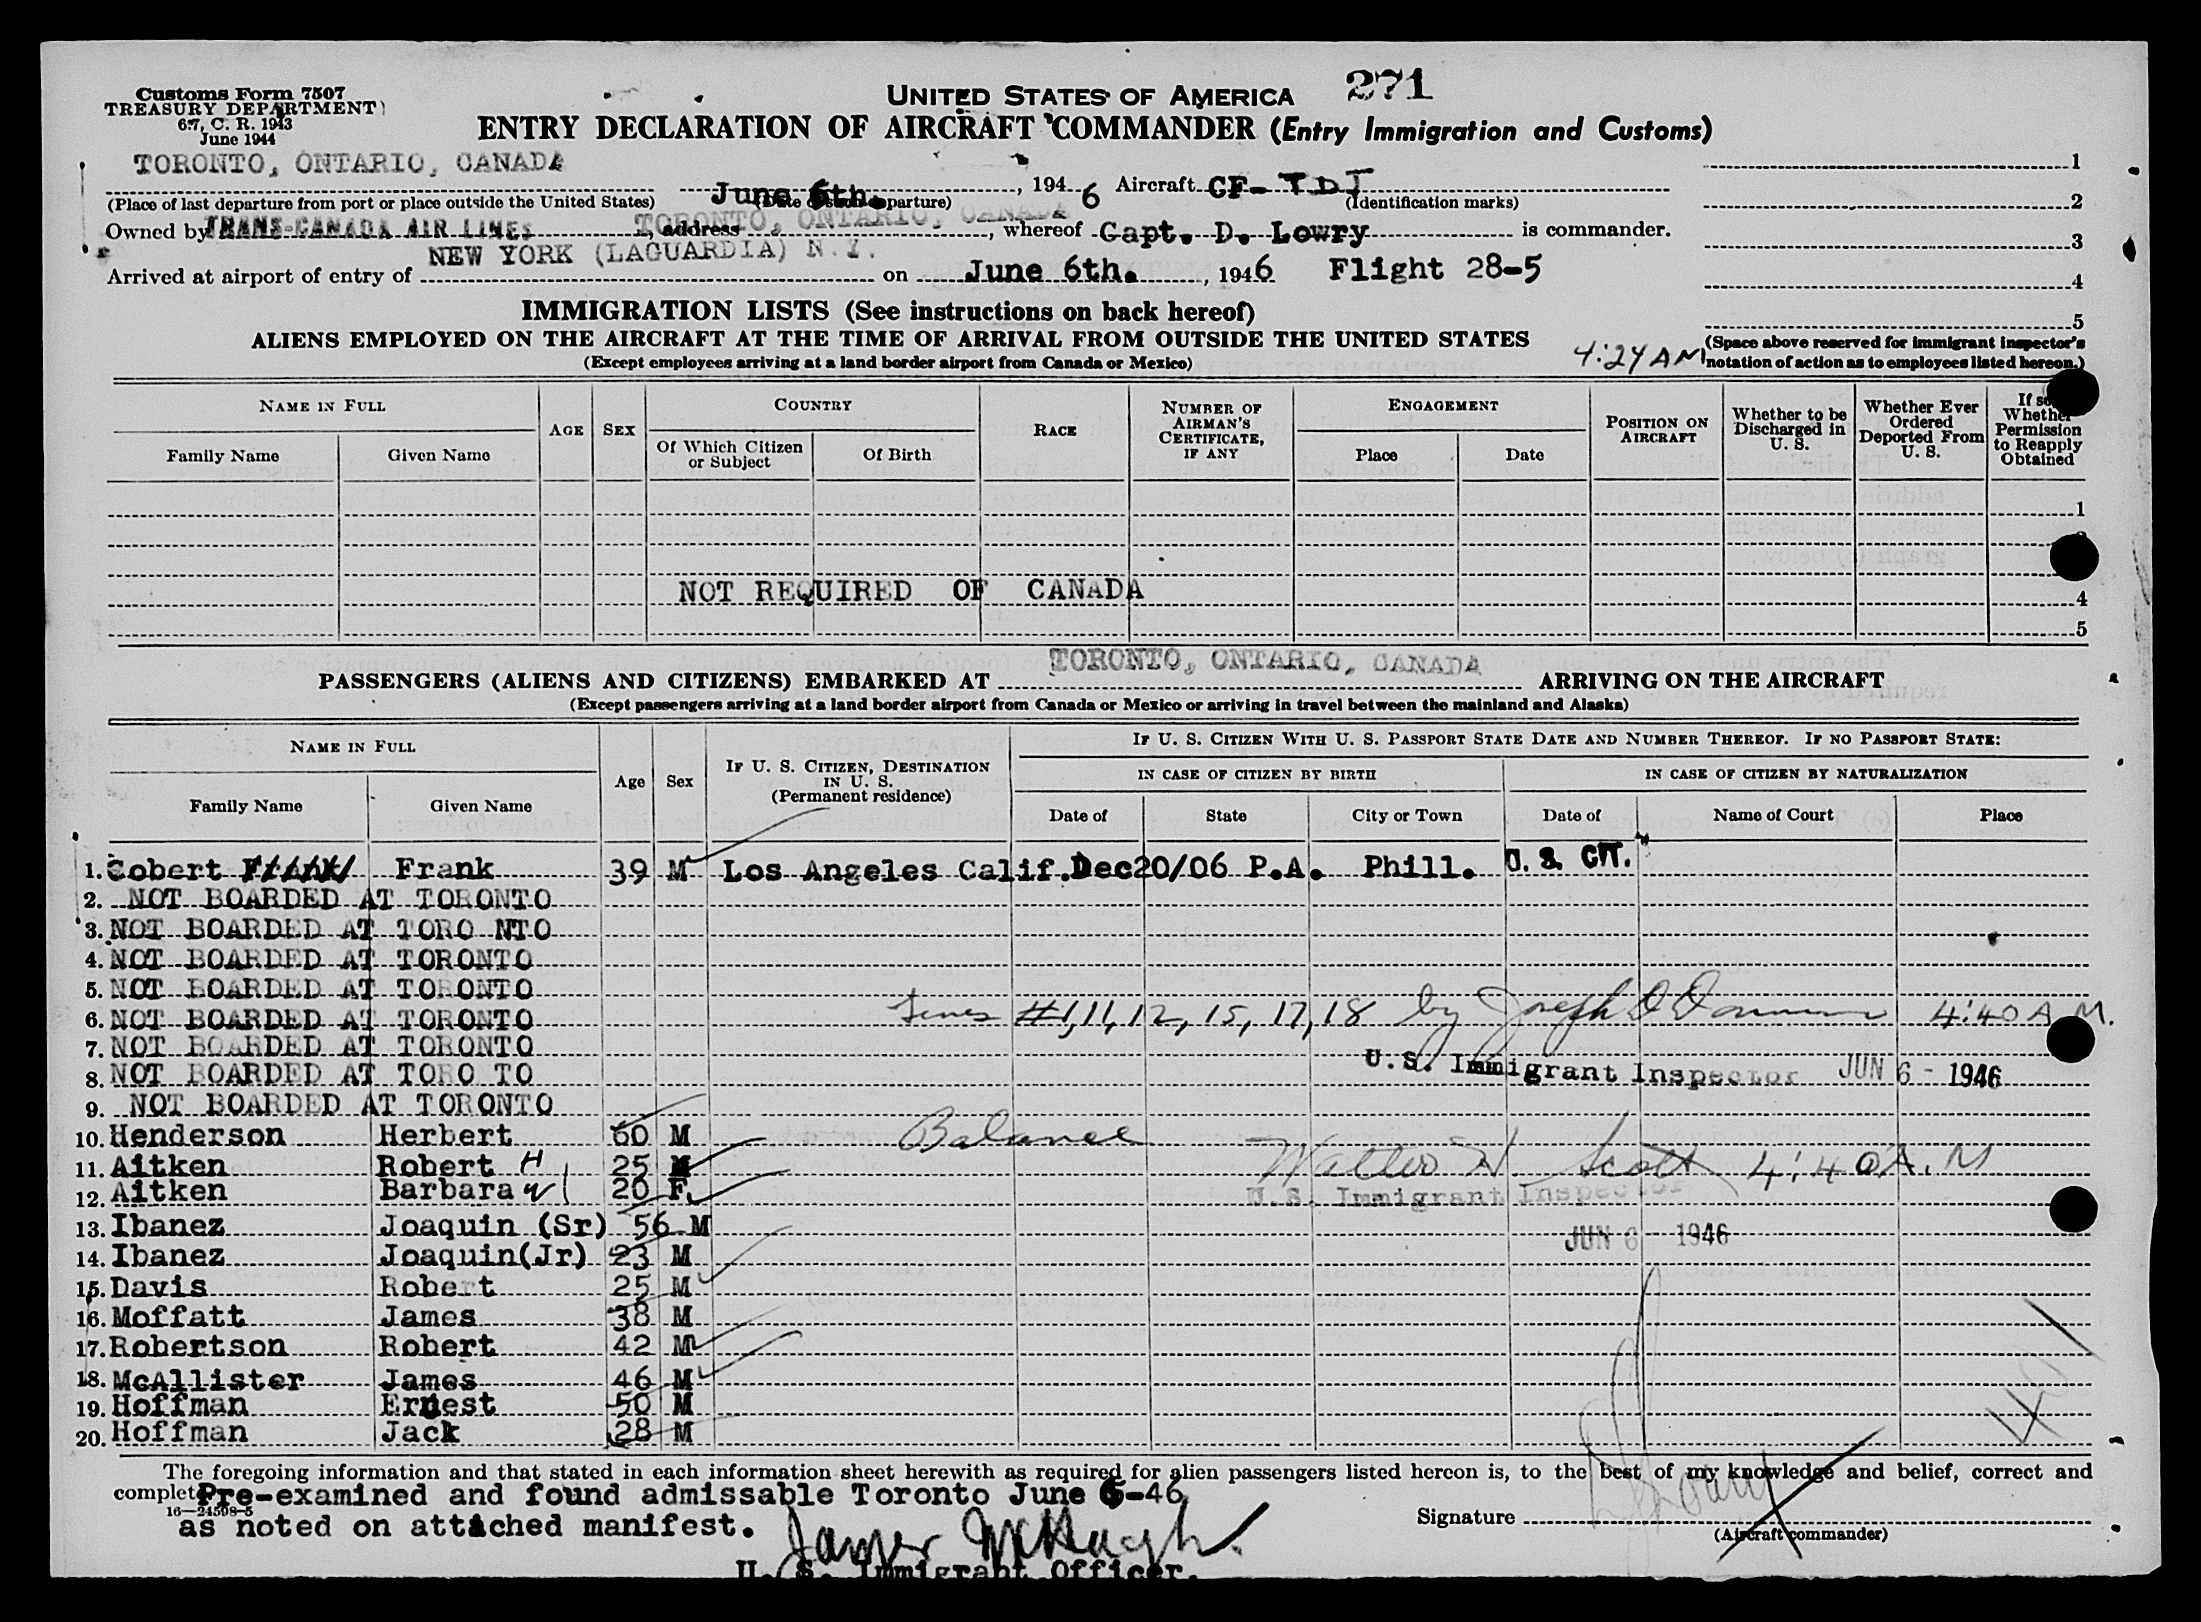 Customs Form 7507
TREASURY DEPARTMENT
6.7, C. R. 1943
June 1944
UNITED STATES OF AMERICA 271
ENTRY DECLARATION OF AIRCRAFT COMMANDER (Entry Immigration and Customs)
TORONTO, ONTARIO, CANADA
June 6th. , 194 6 Aircraft CF- TDJ
(Place of last departure from port or place outside the United States) (Date of such departure) (Identification marks)
Owned by TRANS-CANADA AIR LINES, address TORONTO, ONTARIO, CANADA, whereof Capt. D. Lowry is commander.
Arrived at airport of entry of NEW YORK (LAGUARDIA) N.Y. on June 6th. , 1946 Flight 28-5
1
2
3
4
5
IMMIGRATION LISTS (See instructions on back hereof)
ALIENS EMPLOYED ON THE AIRCRAFT AT THE TIME OF ARRIVAL FROM OUTSIDE THE UNITED STATES
(Except employees arriving at a land border airport from Canada or Mexico)
4:24 AM
(Space above reserved for immigrant inspector's
notation of action as to employees listed hereon.)
NAME IN FULL
Family Name Given Name
AGE SEX
COUNTRY
Of Which Citizen or Subject Of Birth
RACE
NUMBER OF AIRMAN'S CERTIFICATE, IF ANY
ENGAGEMENT
Place Date
POSITION ON AIRCRAFT
Whether to be Discharged in U. S.
Whether Ever Ordered Deported From U. S.
If so Whether Permission to Reapply Obtained
1
4
5
NOT REQUIRED OF CANADA
PASSENGERS (ALIENS AND CITIZENS) EMBARKED AT TORONTO, ONTARIO, CANADA ARRIVING ON THE AIRCRAFT
(Except passengers arriving at a land border airport from Canada or Mexico or arriving in travel between the mainland and Alaska)
NAME IN FULL
Family Name Given Name
Age Sex
IF U. S. CITIZEN, DESTINATION IN U. S.
(Permanent residence)
IF U. S. CITIZEN WITH U. S. PASSPORT STATE DATE AND NUMBER THEREOF. IF NO PASSPORT STATE:
IN CASE OF CITIZEN BY BIRTH IN CASE OF CITIZEN BY NATURALIZATION
Date of State City or Town Date of Name of Court Place
1. Cobert Frank 39 M Los Angeles Calif. Dec20/06 P.A. Phill. U. S. CIT.
2. NOT BOARDED AT TORONTO
3. NOT BOARDED AT TORO NTO
4. NOT BOARDED AT TORONTO
5. NOT BOARDED AT TORONTO
6. NOT BOARDED AT TORONTO
Lines #1, 11, 12, 15, 17, 18 by Joseph 4:40 A.M.
7. NOT BOARDED AT TORONTO
U.S. Immigrant Inspector JUN 6 - 1946
8. NOT BOARDED AT TORO TO
9. NOT BOARDED AT TORONTO
10. Henderson Herbert 60 M Balance
11. Aitken Robert H 25 M Walter H Scott 4:40 A.M
12. Aitken Barbara W 20 F.
U.S. Immigrant Inspector
13. Ibanez Joaquin (Sr) 56 M
JUN 6 1946
14. Ibanez Joaquin(Jr) 23 M
15. Davis Robert 25 M
16. Moffatt James 38 M
17. Robertson Robert 42 M
18. McAllister James 46 M
19. Hoffman Ernest 50 M
20. Hoffman Jack 28 M
The foregoing information and that stated in each information sheet herewith as required for alien passengers listed hereon is, to the best of my knowledge and belief, correct and
complete. Pre-examined and found admissable Toronto June 6-46
16—24598-5
as noted on attached manifest.
Signature
(Aircraft commander)
James McHugh.
U. S. Immigrant Officer.